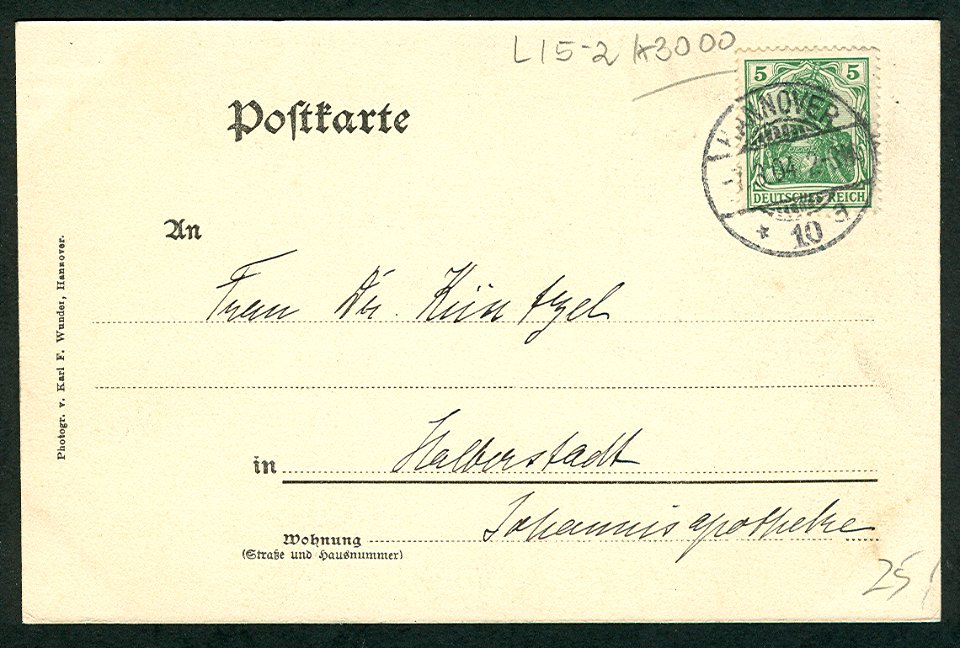 L15-2 A3000
5 5
DEUTSCHES REICH
HANNOVER
.04. 2-
* 10 d
Postkarte
An
Frau Dr. Küntzel
in Halberstadt
Johannisapotheke
Wohnung
(Straße und Hausnummer)
Photogr. v. Karl F. Wunder, Hannover.
25